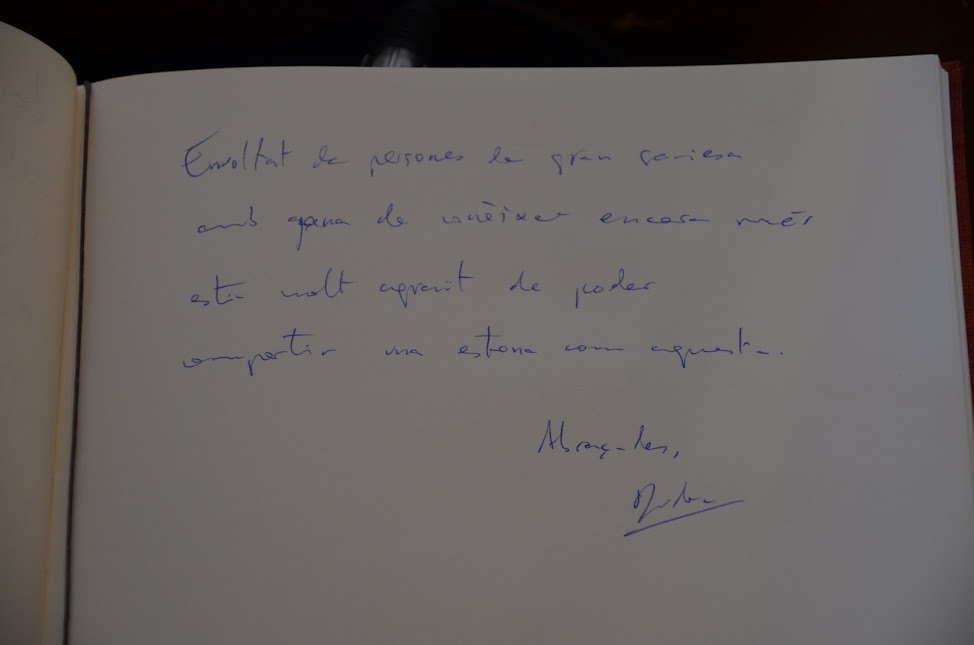 Envoltat de persones de gran saviesa
amb gana de conèixer encara més
estic molt agraït de poder
compartir una estona com aquesta.
Abraçades,